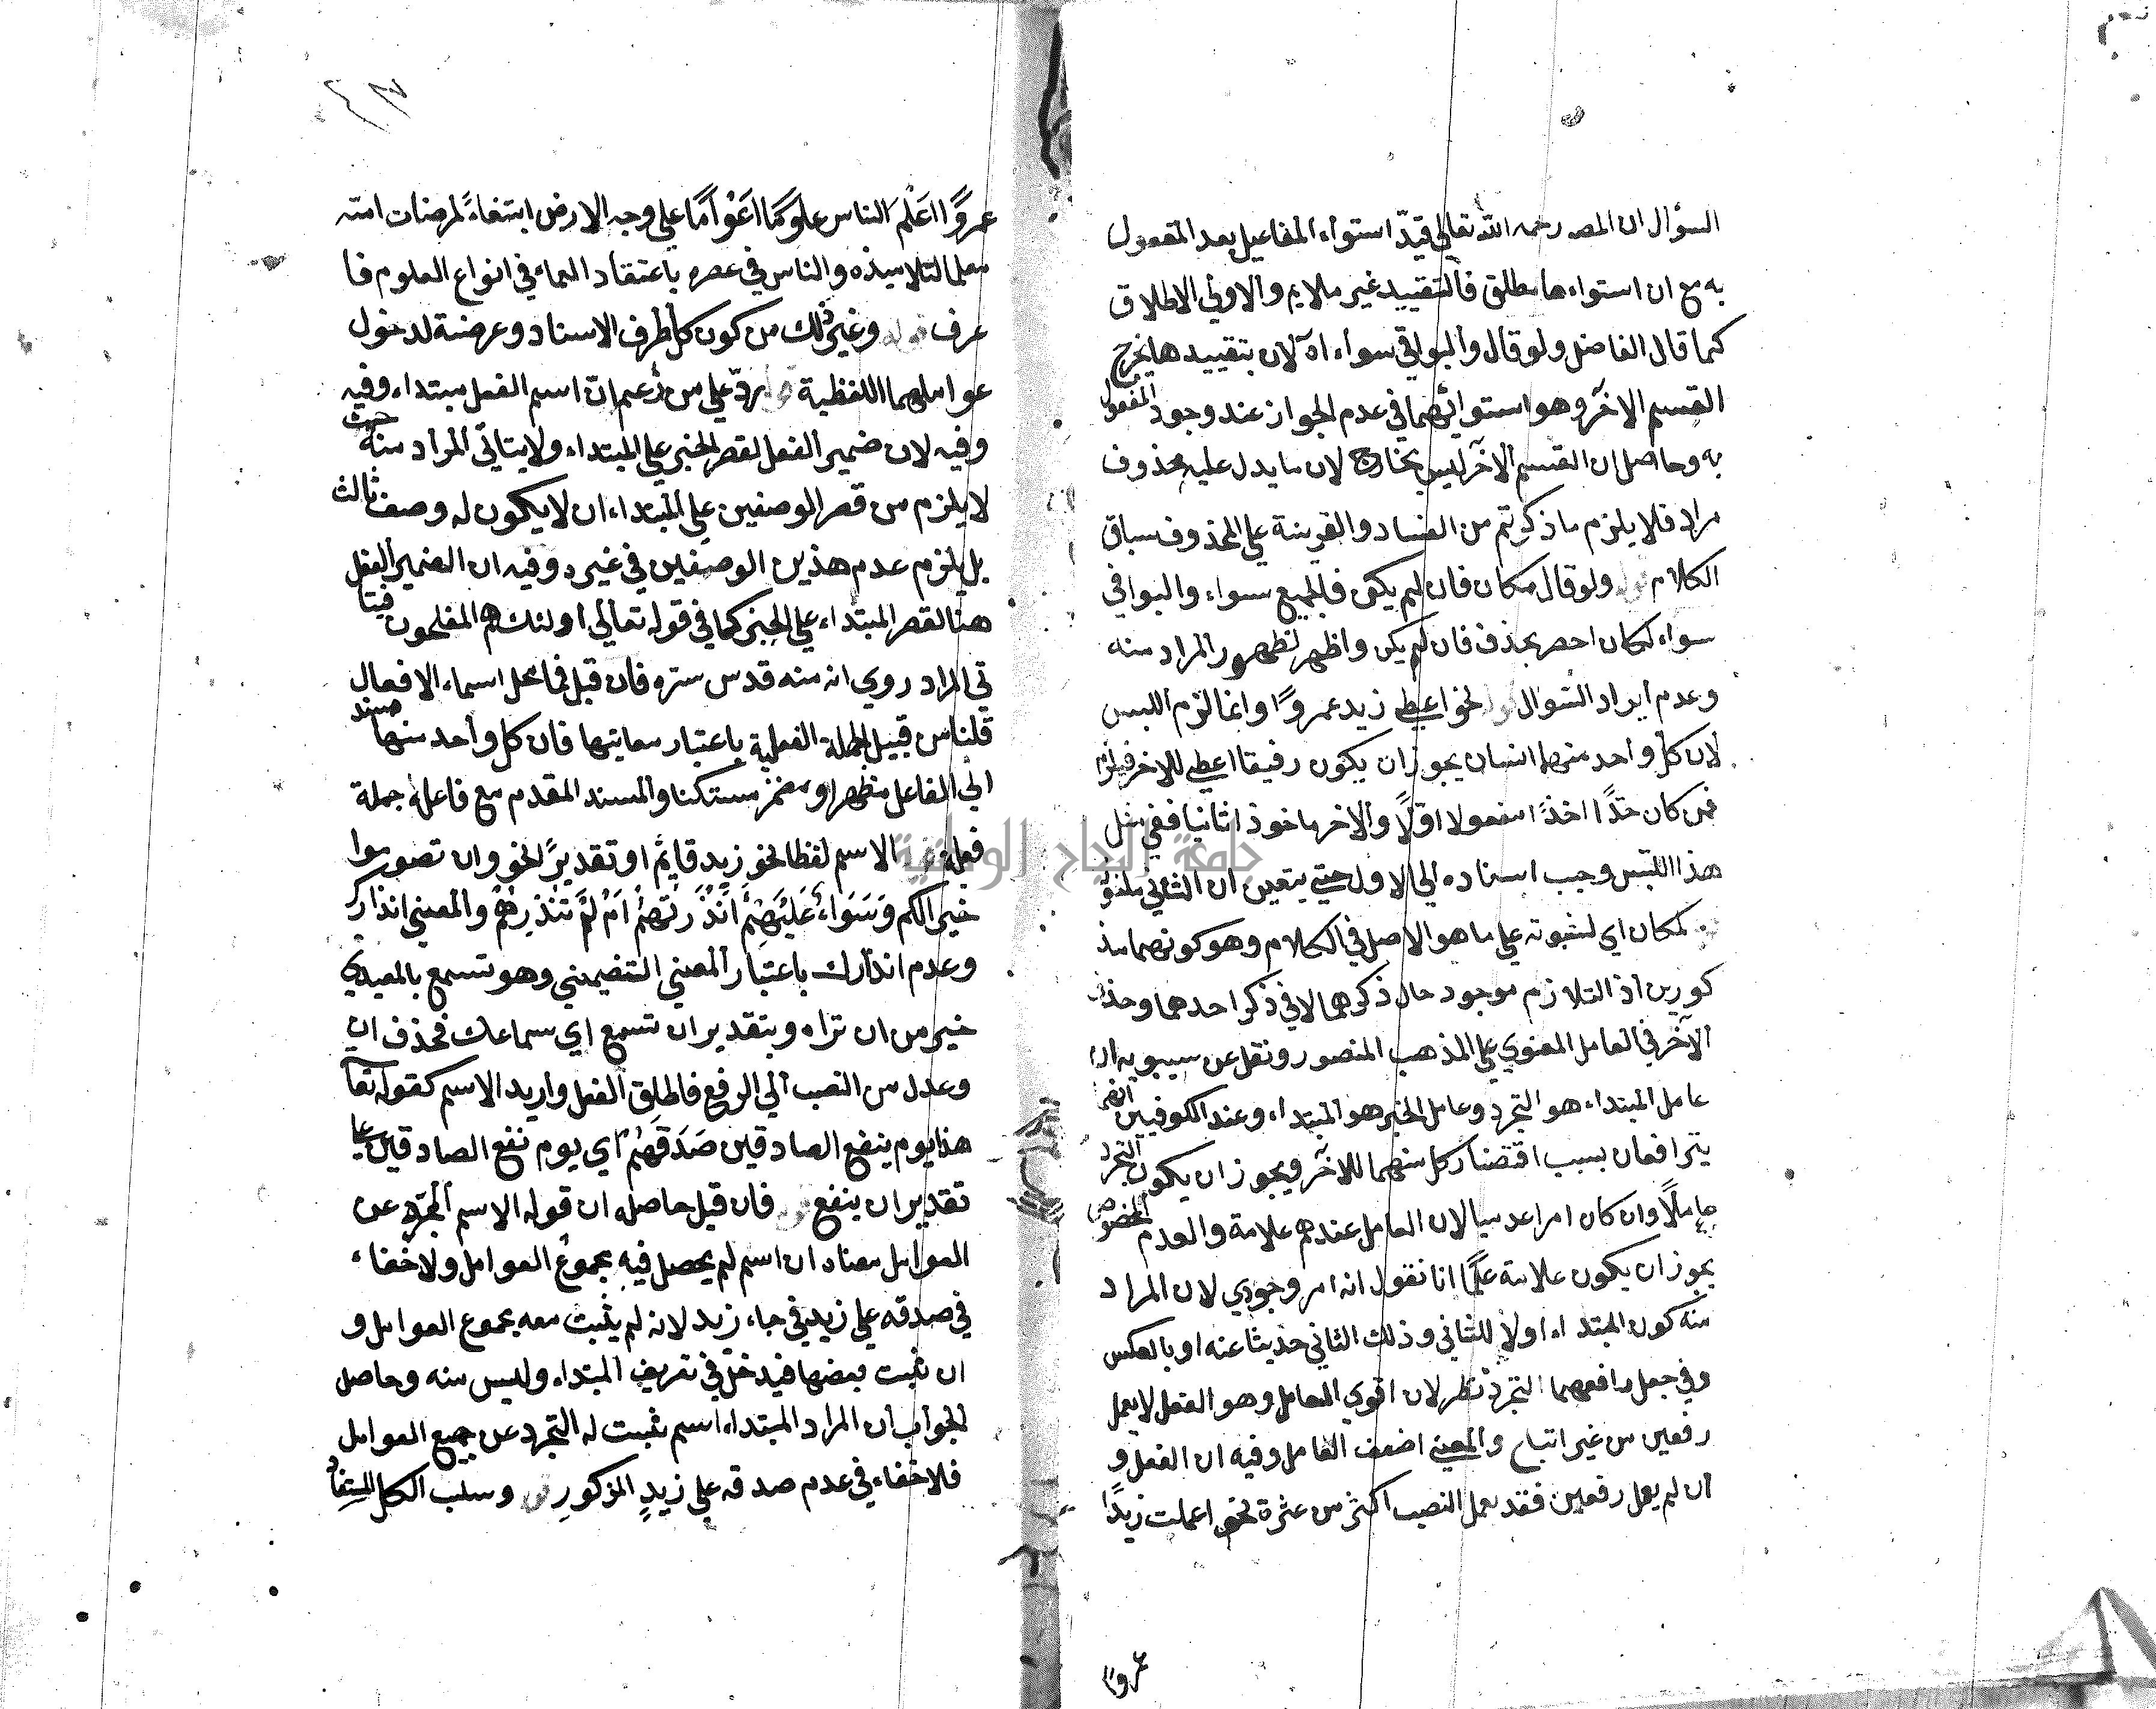 السؤال ان المصـ رحمه الله تعالى قيد استواء المفاعيل بعد المفعول
به مع ان استواءها مطلق فالتقييد غير ملايم والاولى الاطلاق
كما قال الفاضل ولو قال والبواقي سواء اه لان بتقييدها يخرج
القسم الاخر وهو استوائهما في عدم الجواز عند وجود المفعول
به وحاصل ان القسم الاخر ليس بخارج لان ما يدل عليه محذوف
مراد فلا يلزم ما ذكرتم من الفساد والقرينة على المحذوف سباق
الكلام قوله ولو قال مكان فان لم يكن فالجميع سواء والبواقي
سواء لكان احصر بحذف فان لم يكن واظهر لظهور المراد منه
وعدم ايراد السؤال قوله نحو اعطي زيد عمروًا وانما لزم اللبس
لان كل واحد منهما انسان يجوز ان يكون رفيقا اعطي للاخر فيلزم
فمن كان اخذا مفعولا اوّلًا والاخر ماخوذا ثانيا ففي مثل
هذا اللبس وجب اسناده الى الاول حتى يتعين ان الثاني ماخوذ
لمكان اي لثبوته على ما هو الاصل في الكلام وهو كونهما مذ
كورين اذ التلازم موجود حال ذكرهما لا في ذكر احدهما وحذف
الآخر في العامل المعنوي على المذهب المنصور ونقل عن سيبويه ان
عامل المبتداء هو التجرد وعامل الخبر هو المبتداء وعند الكوفيين انهما
يترافعان بسبب اقتضاء كل منهما للاخر ويجوز ان يكون التجرد
عاملًا وان كان امرا عدميا لان العامل عندهم علامة والعدم المخصوص
يجوز ان يكون علامة علما انا نقول انه امر وجودي لان المراد
منه كون المبتداء اولا للثاني وذلك الثاني حديثا عنه او بالعكس
وفي جعل رافعهما التجرد نظر لان اقوى العامل وهو الفعل لا يعمل
رفعين من غير اتباع والمعنى اضعف العامل وفيه ان الفعل و
ان لم يعمل رفعين فقد يعمل النصب اكثر من عشرة نحو اعلمت زيدًا
عمروًا
عمروًا اعلم الناس علومًا اعوامًا على وجه الارض ابتغاءً لمرضات الله
معلما لتلاميذه والناس في عصره باعتقاد العماء في انواع العلوم فا
عرف قوله وغير ذلك من كون كل طرف الاسناد وعرضة لدخول
عواملهما اللفظية قوله ردّ على من زعم ان اسم الفعل مبتداء وفيه
وفيه لان ضمير الفعل لقصر الخبر على المبتداء ولا يتاتى المراد منه حيث
لا يلزم من قصر الوصفين على المبتداء ان لا يكون له وصف ثالث
بل يلزم عدم هذين الوصفين في غيره وفيه ان الضمير الفعل
هنا لقصر المبتداء على الخبر كما في قوله تعالى اولئك هم المفلحون فيتا
تى المراد روي انه منه قدس سره فان قيل فما محل اسماء الافعال
قلنا من قبيل الجملة الفعلية باعتبار معانيها فان كل واحد منها مسند
الى الفاعل مظهرا ومضمر مستكنا والمسند المقدم مع فاعله جملة
فعلية قوله الاسم لفظا نحو زيد قايم او تقديرً نحو وان تصوموا
خير الكم وَسَوَاء عَلَيْهِمْ أَنْذَرْتَهُمْ اَمْ لَمْ تُنْذِرْهُمْ والمعنى انذارك
وعدم انذارك باعتبار المعنى التضمني وهو تسمع بالمعيدي
خير من ان تراه وبتقدير ان تسمع اي سماعك فحذف ان
وعدل من النصب الى الرفع فاطلق الفعل واريد الاسم كقوله تعا
هذا يوم ينفع الصادقين صدقهم اي يوم نفع الصادقين على
تقدير ان ينفع قوله فان قيل حاصله ان قوله الاسم المجرد عن
العوامل معناه ان اسم لم يحصل فيه مجموع العوامل ولا خفاء
في صدقه على زيد في جاء زيد لانه لم يثبت معه مجموع العوامل و
ان ثبت بعضها فيدخل في تعريف المبتداء وليس منه وحاصل
الجواب ان المراد المبتداء اسم ثبت له التجرد عن جميع العوامل
فلا خفاء في عدم صدقه على زيدٍ المذكورِ قوله وسلب الكل المستفاد
جامعة النجاح الوطنية